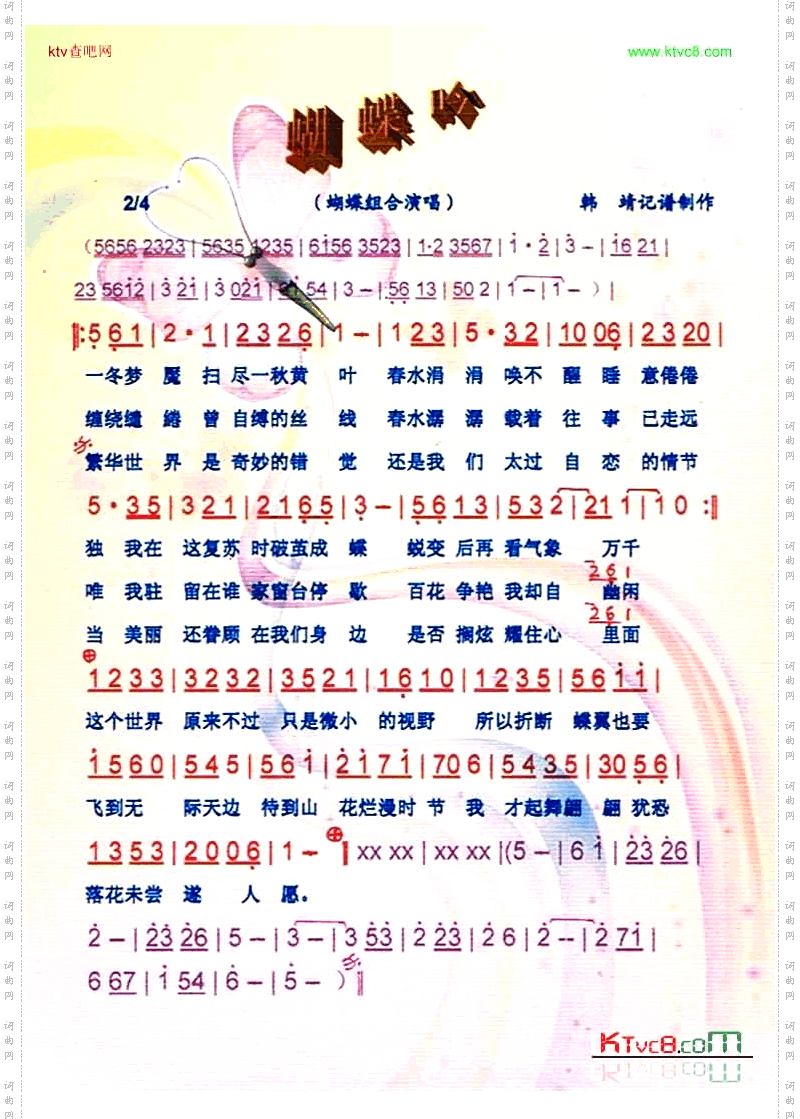 ktv查吧网 www.ktvc8.com
蝴蝶吟
2/4 (蝴蝶组合演唱) 韩 靖记谱制作
(5656 2323 | 5635 1235 | 6156 3523 | 1·2 3567 | 1·2 | 3 – | 16 21 |
23 5612 | 3 21 | 3 021 | 61 54 | 3 – | 56 13 | 50 2 | 1 – | 1 – ) |
‖: 5 61 | 2·1 | 2326 | 1 – | 1 23 | 5·32 | 10 06 | 23 20 |
一冬梦 魇 扫 尽一秋黄 叶 春水涓 涓 唤不 醒 睡 意倦倦
缠绕缱 绻 曾 自缚的丝 线 春水潺 潺 载着 往 事 已走远
繁华世 界 是 奇妙的错 觉 还是我 们 太过 自 恋 的情节
5·35 | 3 21 | 21 65 | 3 – | 56 13 | 53 2 | 21 1 | 1 0 :‖
独 我在 这复苏 时破茧成 蝶 蜕变 后再 看气象 万千
261
唯 我驻 留在谁 家窗台停 歇 百花 争艳 我却自 幽闲
261
当 美丽 还眷顾 在我们身 边 是否 搁炫 耀住心 里面
12 33 | 32 32 | 35 21 | 1610 | 1235 | 56 11 |
这个世界 原来不过 只是微小 的视野 所以折断 蝶翼也要
1560 | 545 | 561 | 2171 | 706 | 54 35 | 30 56 |
飞到无 际天边 待到山 花烂漫时 节 我 才起舞翩 翩 犹恐
1353 | 2006 | 1 – ‖ xx xx | xx xx |(5 – | 6 1 | 23 26 |
落花未尝 遂 人 愿。
2 – | 23 26 | 5 – | 3 – | 3 53 | 2 23 | 2 6 | 2 -- | 2 71 |
6 67 | 1 54 | 6 – | 5 – ) ‖
KTvc8.com